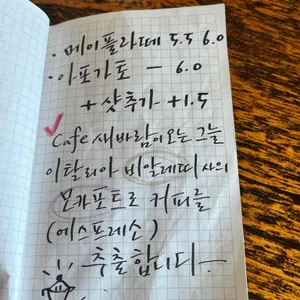 · 메이플라떼 5.5 6.0
· 아포가토 — 6.0
+ 샷추가 +1.5
Cafe 새바람이오는그늘
이탈리아 비알레띠사의
모카포트로 커피를
(에스프레소)
추출합니다~